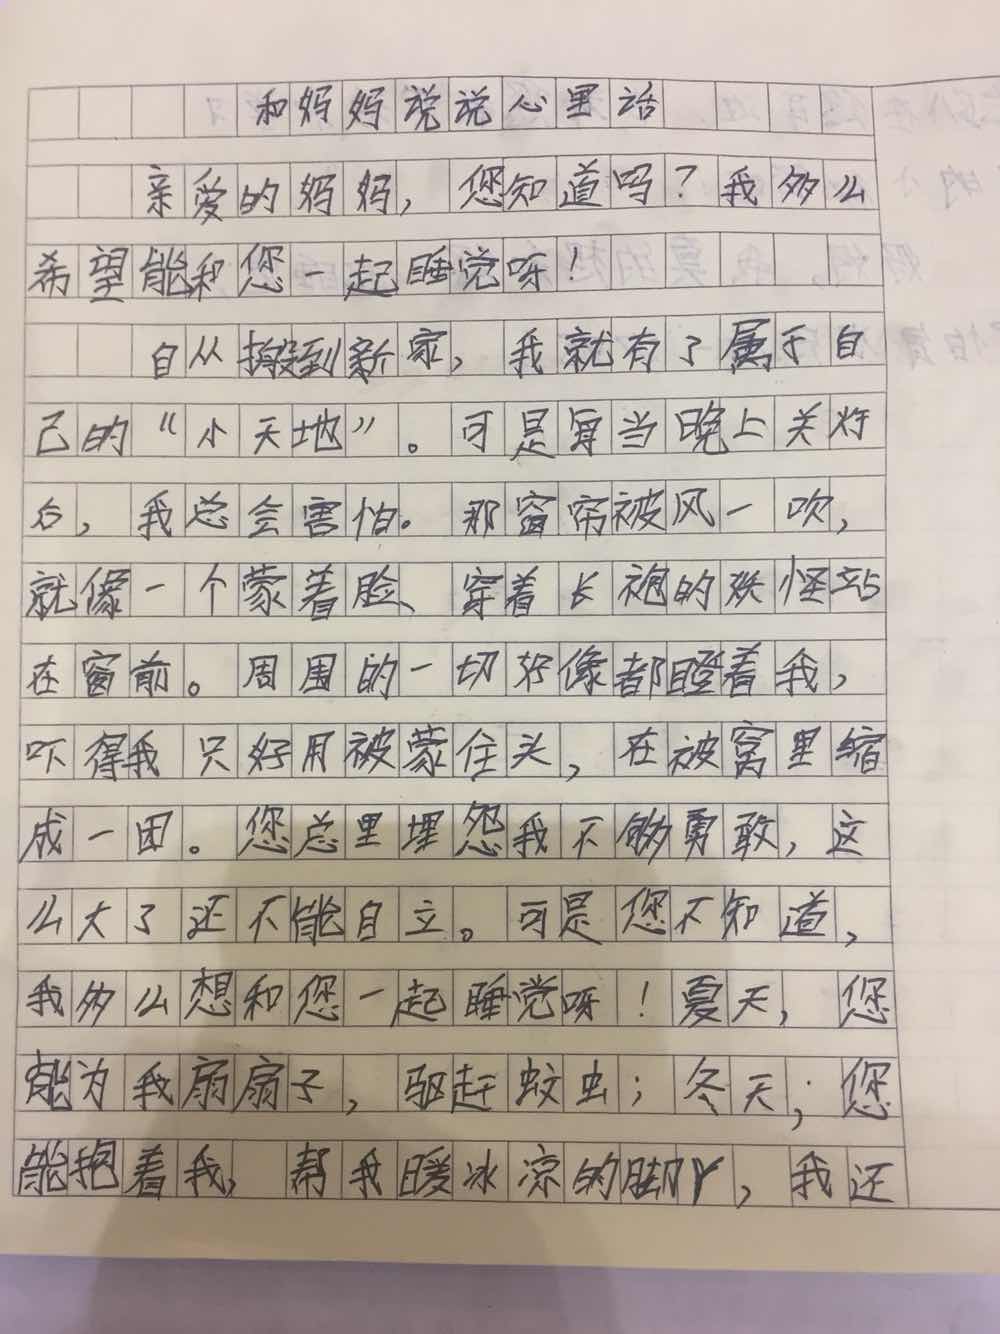 和妈妈说说心里话
亲爱的妈妈，您知道吗？我多么
希望能和您一起睡觉呀！
自从搬到新家，我就有了属于自
己的“小天地”。可是每当晚上关灯
后，我总会害怕。那窗帘被风一吹，
就像一个蒙着脸、穿着长袍的妖怪站
在窗前。周围的一切好像都瞪着我，
吓得我只好用被蒙住头，在被窝里缩
成一团。您总里埋怨我不够勇敢，这
么大了还不能自立。可是您不知道，
我多么想和您一起睡觉呀！夏天，您
能为我扇扇子，驱赶蚊虫；冬天；您
能抱着我，帮我暖冰凉的脚丫，我还